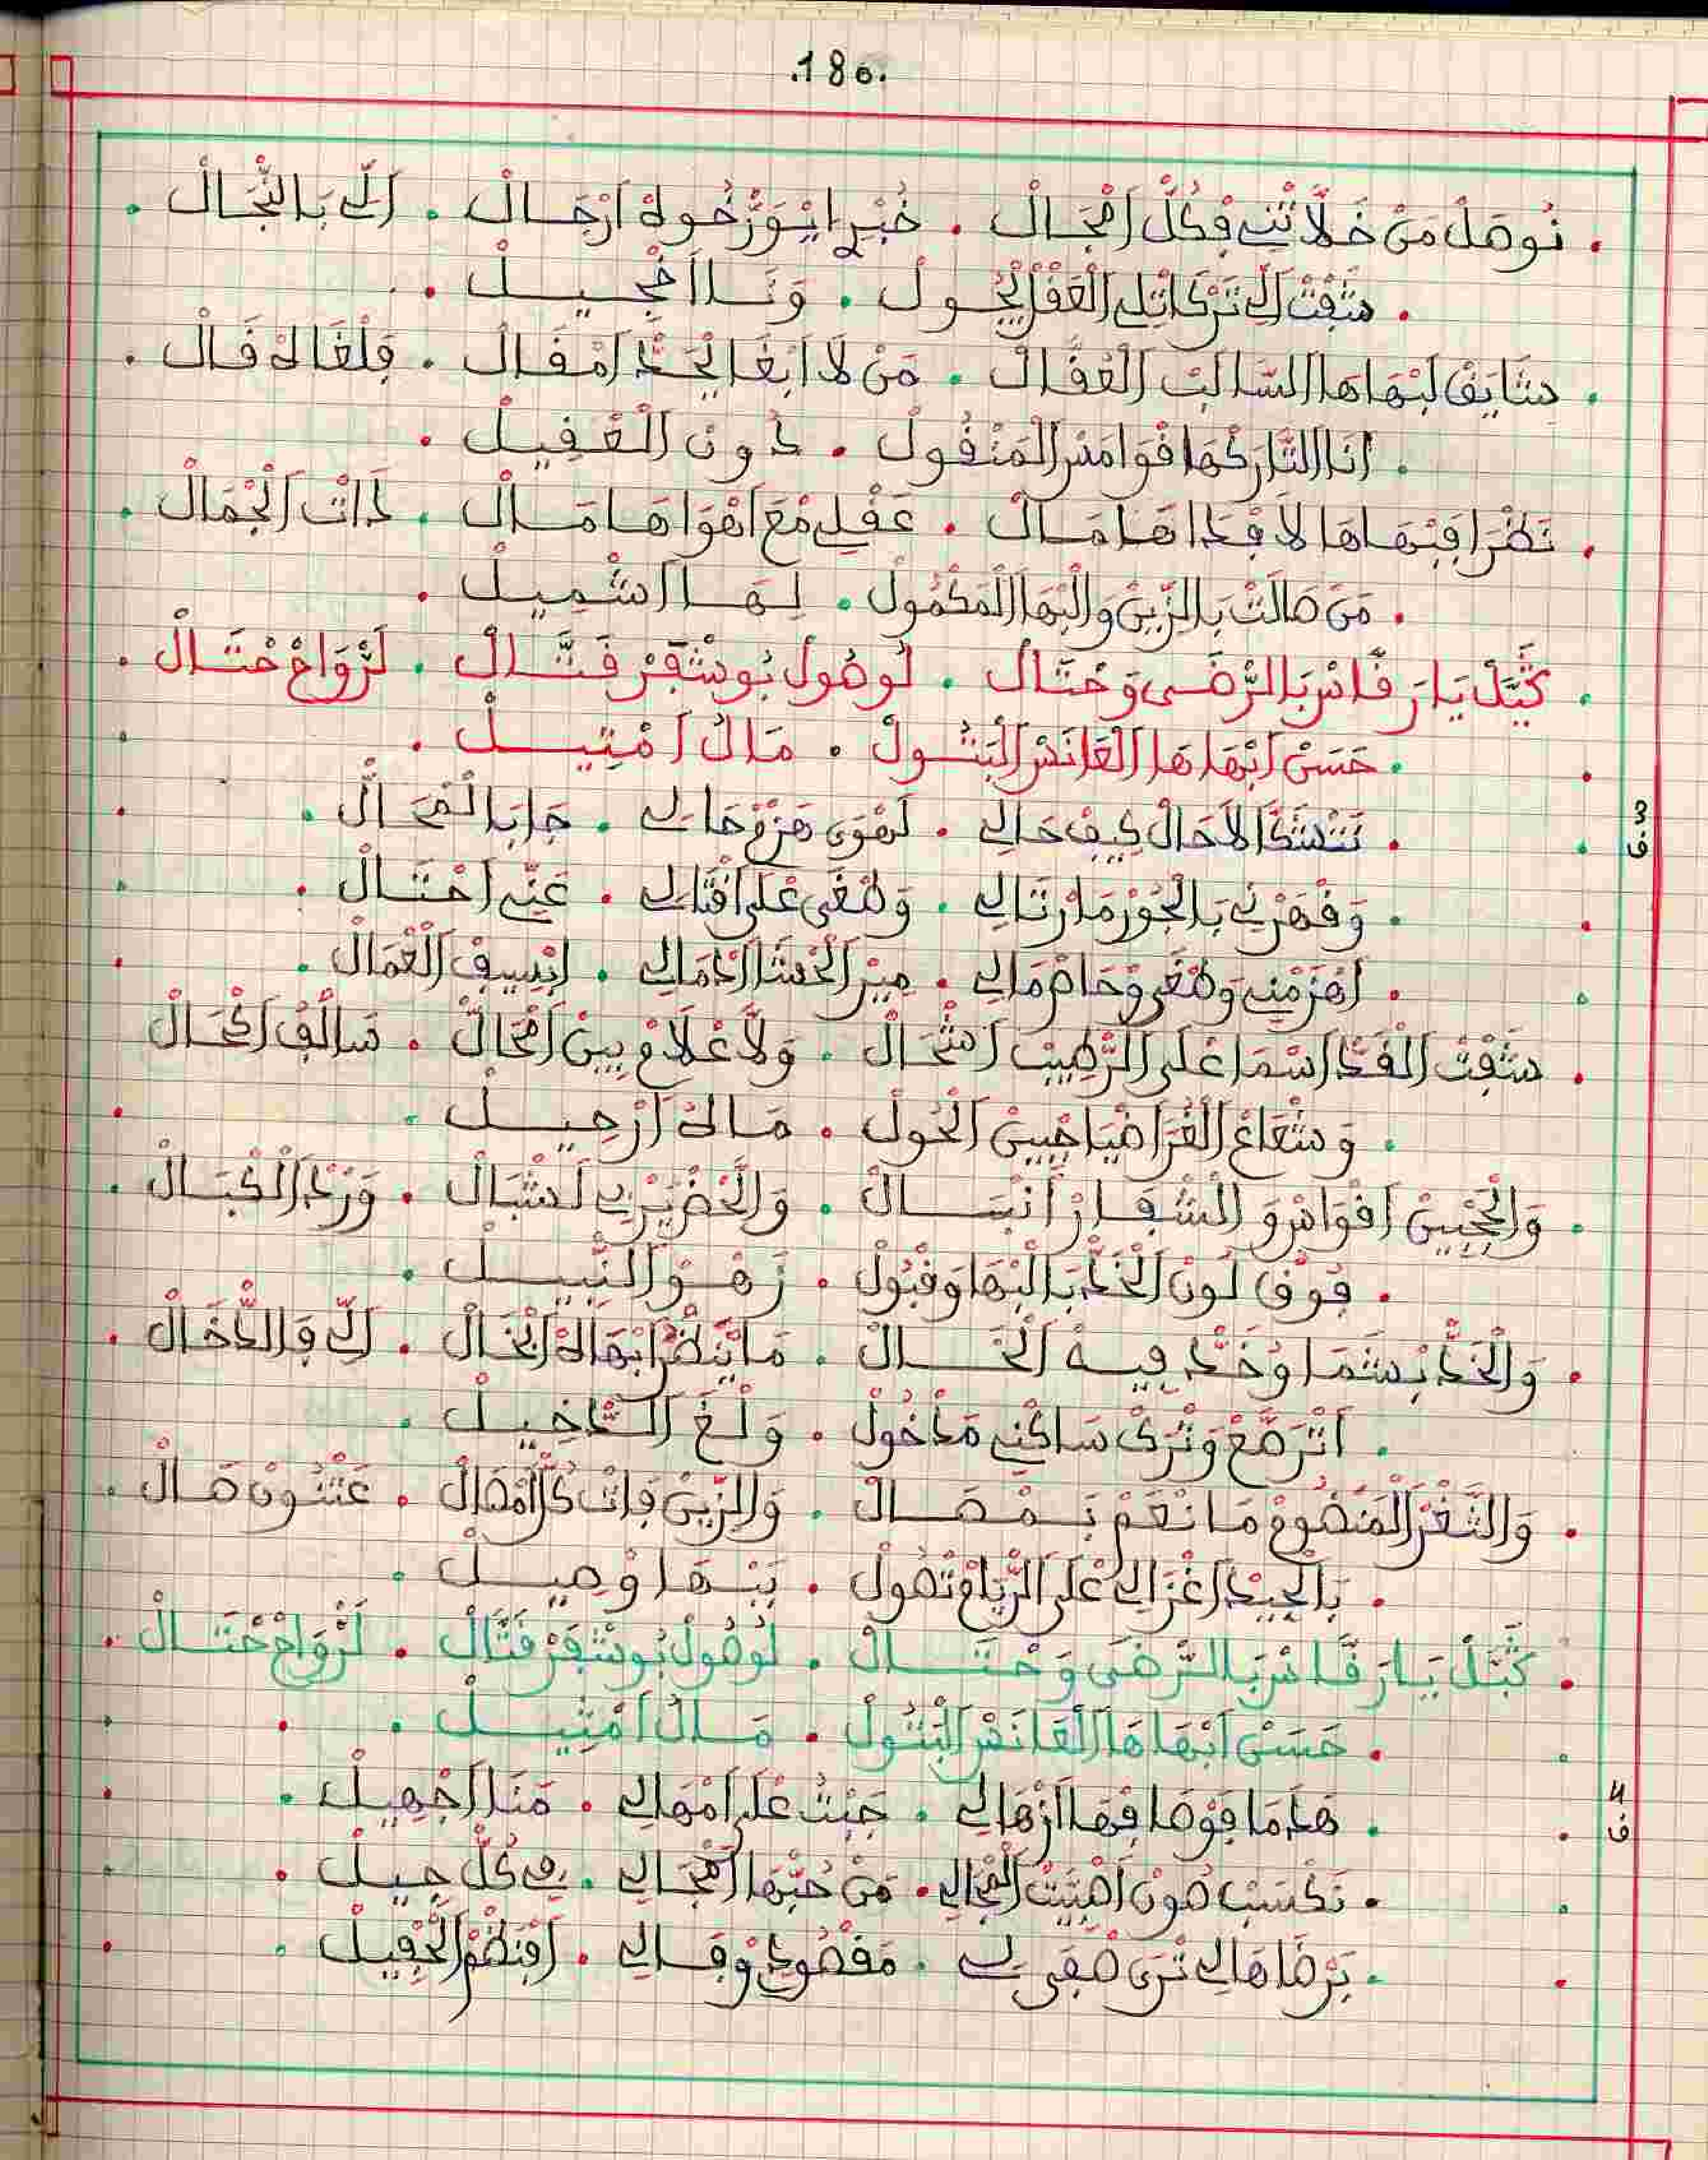 .180.
. نُوصَلْ مَنْ خَلَّاتْنِي فْكُلّ اَمْجَالْ . خُبْرِ ايْوَرّْخُوهْ اَرْجَالْ . اَلِّي بَالنّْجَالْ .
. شَفْتْ اَلِّي تَرْكَاتْلِي الْعَقْلْ ايْجُولْ . وَنَا اَخْجِيلْ .
. شَايَقْ لَبْهَاهَا السَّالَبْ الْعُقَّالْ . مَنْ لَا اَبْغَا لْحَدّْ اَمْقَالْ . قَلْعَالَهْ قَالْ .
. اَنَا التَّارَكْهَا قْوَامَسْ الْمَنْقُولْ . دُونْ الْعْقِيلْ .
. نَظْرَا فَبْهَاهَا لَا فْدَاهَا مَالْ . عَقْلِي مْعَ اَهْوَاهَا مَالْ . ذَاتْ الْجْمَالْ .
. مَنْ صَالَتْ بَالزِّينْ وَالْبْهَا الْمَكْمُولْ . لَهَا اشْمِيلْ .
. كَيَّلْ يَا رَقَّاسْ بَالرّْضَى وَحْتَالْ . لُوصُولْ بُوشْفَرْ قَتَّالْ . لَرْوَاحْ حْتَالْ .
. حَسْنْ اَبْهَاهَا الْعَانَسْ الْبَتُولْ . مَالُ اَمْتِيلْ .
ف3 . نَتْشَكَّا لَاحَالْ كِيفْ حَالِي . لَهْوَى هَزْمْ حَالِي . جَا بَالْمْحَالْ .
. وَقْهَرْنِي بَالْجُورْ مَا رْتَالِي . وَطْغَى عْلَى اَقْتَالِي . عَنِّي اَحْتَالْ .
. اَهْزَمْنِي وَطْغَى وْحَاطْ مَالِي . مِيرْ الْحْشَا اَدْمَالِي . ابْسِيفْ الْعْمَالْ .
. شَفْتْ الْقَدّْ اَسْمَا عْلَى الرّْطِيبْ اَشْحَالْ . وَلَّا عْلَامْ بِينْ اَمْحَالْ . سَالَفْ اَكْحَالْ
. وَشْعَاعْ الْغُرَّا ضْيَا جْبِينْ الْحُولْ . مَالَهْ اَرْحِيلْ .
. وَالْحَجْبِينْ اَقْوَاسْ وَ الشْفَارْ اَنْبَالْ . وَالْخَضْرِيِّنْ لَشْبَالْ . وَرْدْ الْكْبَالْ .
. فُوقْ لُونْ الْخَدّْ بَالْبْهَا وَقْبُولْ . زَهْوْ النّْبِيلْ .
. وَالْخَدّْ بْشَمَا وْخَدّْ فِيهْ الْخَالْ . مَا يَنْظَرْ اَبْهَالَهْ اَبْخَالْ . اَلِّي فَالدّْخَالْ .
. اَتْرَصَّعْ وَتْرَكْ سَاكْنِي مَدْخُولْ . وَلْغَ الدّْخِيلْ .
. وَالثَّغْرْ الْمَنْضُومْ مَا نْعَمْ بَمْصَالْ . وَالزِّينْ فَاتْ كُلّْ اَمْصَالْ . عَتْنُونْ صَالْ .
. بَالْجِيدْ اَغْزَالِي عْلَى الرّْيَامْ تْصُولْ . بَبْهَا وْصِيلْ .
. كَيَّلْ يَا رَقَّاسْ بَالرّْضَى وَحْتَالْ . لُوصُولْ بُوشْفَرْ قَتَّالْ . لَرْوَاحْ حْتَالْ .
. حَسْنْ اَبْهَاهَا الْعَانَسْ الْبَتُولْ . مَالُ اَمْتِيلْ .
ف4 . هَا مَا فَوْصَافْهَا اَزْهَالِي . جَبْتْ عْلَى اَمْهَالِي . مَنَا اَجْهِيلْ .
. نَكْسَبْ صُونْ اَهْبَيْتْ الْمْجَالِي . مَنْ حُبّْهَا اَمْجَالِي . فِي كُلّْ جِيلْ .
. بَرْضَاهَا لِي تْرَى صْفَى لِي . مَقْصُودْ وْفَالِي . اَفْنَظْمْ الْحْفِيلْ .